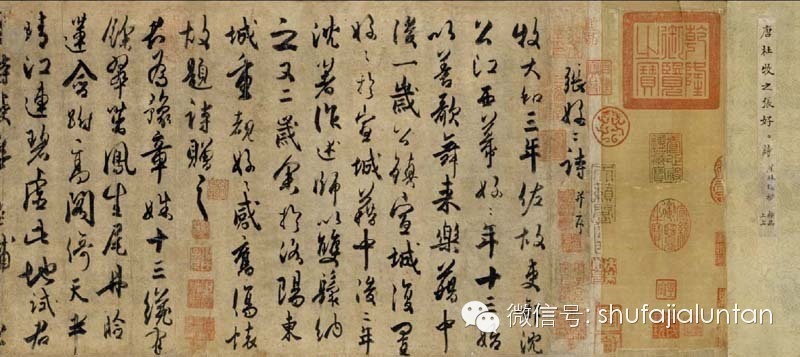 唐杜牧之張好〻詩
乾隆御覽之寶
張好〻詩 并序
牧大和三年佐故吏部沈
公江西幕好〻年十三始
以善歌舞來樂籍中
後一歲公鎮宣城復置
好〻於宣城籍中後二年
沈著作述師以雙鬟納
之又二歲余於洛陽東
城重覩好〻感舊傷懷
故題詩贈之
君為豫章姝十三纔有
餘翠茁鳳生尾丹臉
蓮含跗高閣倚天半
晴江連碧虛此地試君
微信号: shufajialuntan